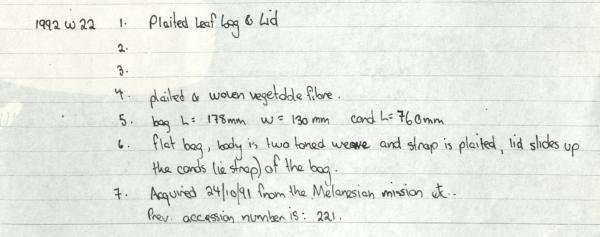 1992 W 22 1. Plaited Leaf bag & Lid
2.
3.
4. plaited & woven vegetable fibre.
5. bag L = 178mm W = 130 mm cord L = 760mm
6. flat bag, body is two toned weave and strap is plaited, lid slides up
the cords (ie strap) of the bag.
7. Acquired 24/10/91 from the Melanesian mission et..
Prev. accession number is: 221.